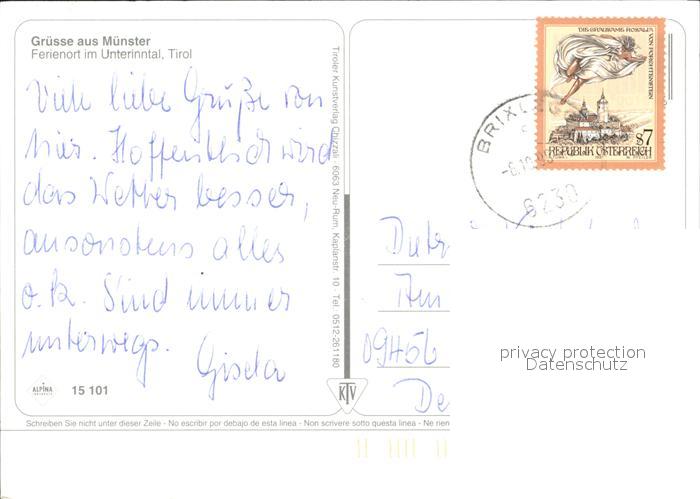 Grüsse aus Münster
Ferienort im Unterinntal, Tirol
Viele liebe Grüße von
hier. Hoffentlich wird
das Wetter besser,
ansonstens alles
o.k. Sind immer
unterwegs.
Gisela
ALPINA
15 101
Tiroler Kunstverlag Chizzali · 6063 Neu-Rum, Kaplanstr. 10 · Tel. 0512-261180
KTV
Schreiben Sie nicht unter dieser Zeile - No escribir por debajo de esta linea - Non scrivere sotto questa linea - Ne rien
DIE GRAUSAME ROSALIA
VON FORCHTENSTEIN
S7
REPUBLIK ÖSTERREICH
BRIXL
6230
Am
09456
De
privacy protection
Datenschutz